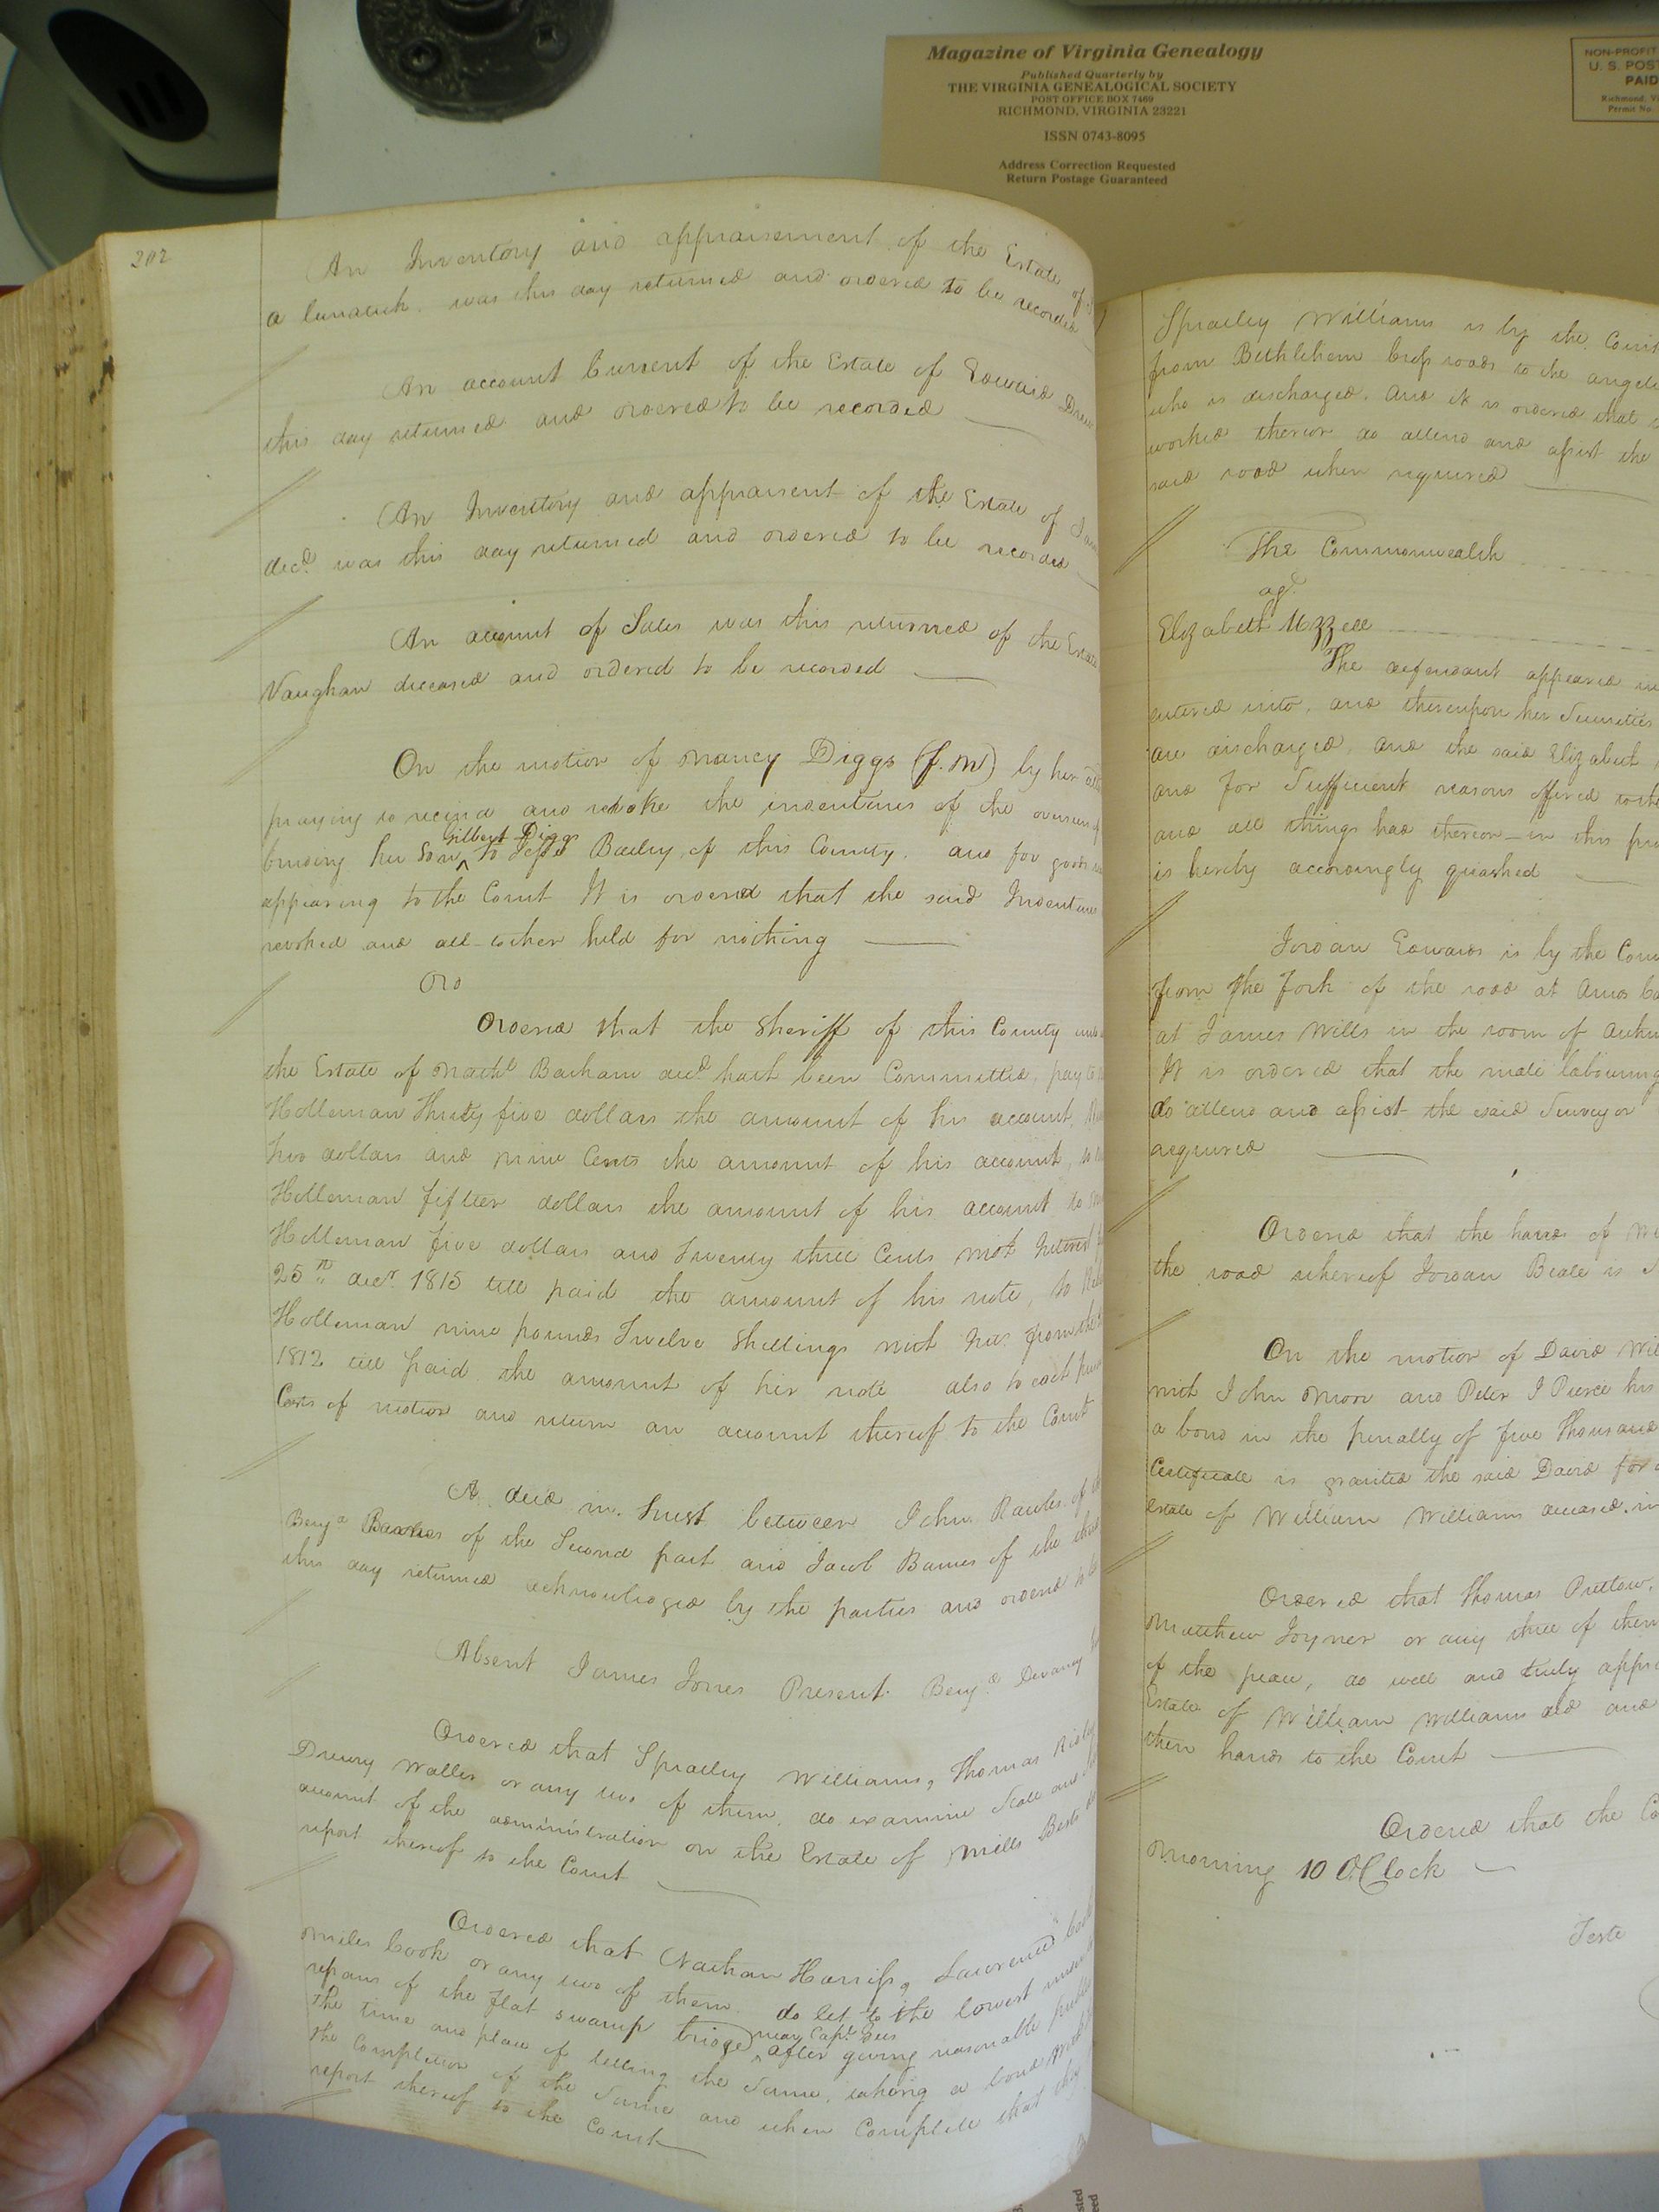 Magazine of Virginia Genealogy
Published Quarterly by
THE VIRGINIA GENEALOGICAL SOCIETY
POST OFFICE BOX 7469
RICHMOND, VIRGINIA 23221
ISSN 0743-8095
Address Correction Requested
Return Postage Guaranteed
NON-PROFIT
U. S. POST
PAID
Richmond, V
Permit No.
202
An Inventory and appraisement of the Estate of
a lunatick was this day returned and ordered to be recorded
An account Current of the Estate of Edward Drew
this day returned and ordered to be recorded
An Inventory and appraisent of the Estate of
decd. was this day returned and ordered to be recorded
An account of Sales was this returned of the Estate
Vaughan deceased and ordered to be recorded
On the motion of Nancy Diggs (f.m) by her
praying to recind and revoke the indentures of the overseers of
Gilbert Diggs
binding her Son ^ to Jesse Bailey of this County, and for good
appearing to the Court It is ordered that the said Indenture
revoked and all-tother held for nothing
Ord
Ordered that the Sheriff of this County
the Estate of Nathl Barham decd hath been Committed, pay to
Holleman Thirty five dollars the amount of his account,
two dollars and nine Cents the amount of his account, to
Holleman fifteen dollars the amount of his account to
Holleman five dollars and Twenty three Cents with Interest
25th decr 1815 till paid the amount of his note, to
Holleman nine pounds Twelve Shillings with Int. from the
1812 till paid the amount of his note also to each
Costs of motion and return an account thereof to the Court
A deed in Trust between John Rawls of
Benja Barnes of the Second part and Jacob Barnes of the third
this day returned acknowledged by the parties and ordered to be
Absent James Jones Present Benja Devany
Ordered that Spratley Williams, Thomas
Drewry Waller or any two of them, do examine State and
account of the administration on the Estate of Mills Best
report thereof to the Court
Ordered that Nathan Harriss, Lawrence
Miles Cook or any two of them do let to the lowest
near Capt. Gees
repairs of the flat swamp bridge ^ after giving reasonable public
the time and place of letting the Same, taking a bond with
the Completion of the Same and when Complete that they
report thereof to the Court
Spratley Williams is by the Court
from Bethlehem Cross roads to the
who is discharged. And it is ordered that
worked thereon do attend and assist the
said road when required
The Commonwealth
agt.
Elizabeth Uzzell
The defendant appeared
entered into, and thereupon her Securities
are discharged, and the said Elizabeth
and for Sufficient reasons offered to the
and all things had thereon in this
is hereby accordingly quashed
Jordan Edwards is by the Court
from the fork of the road at Amos
at James Wills in the room of
It is ordered that the male labouring
do attend and assist the said Surveyor
required
Ordered that the hands of
the road whereof Jordan Beale is
On the motion of David
with John Moor and Peter J Pierce his
a bond in the penalty of five Thousand
Certificate is granted the said David for
Estate of William Williams deceased. in
Ordered that Thomas Pretlow,
Matthew Joyner or any three of them
of the peace, do well and truly
Estate of William Williams decd and
their hands to the Court
Ordered that the
Morning 10 OClock
Teste